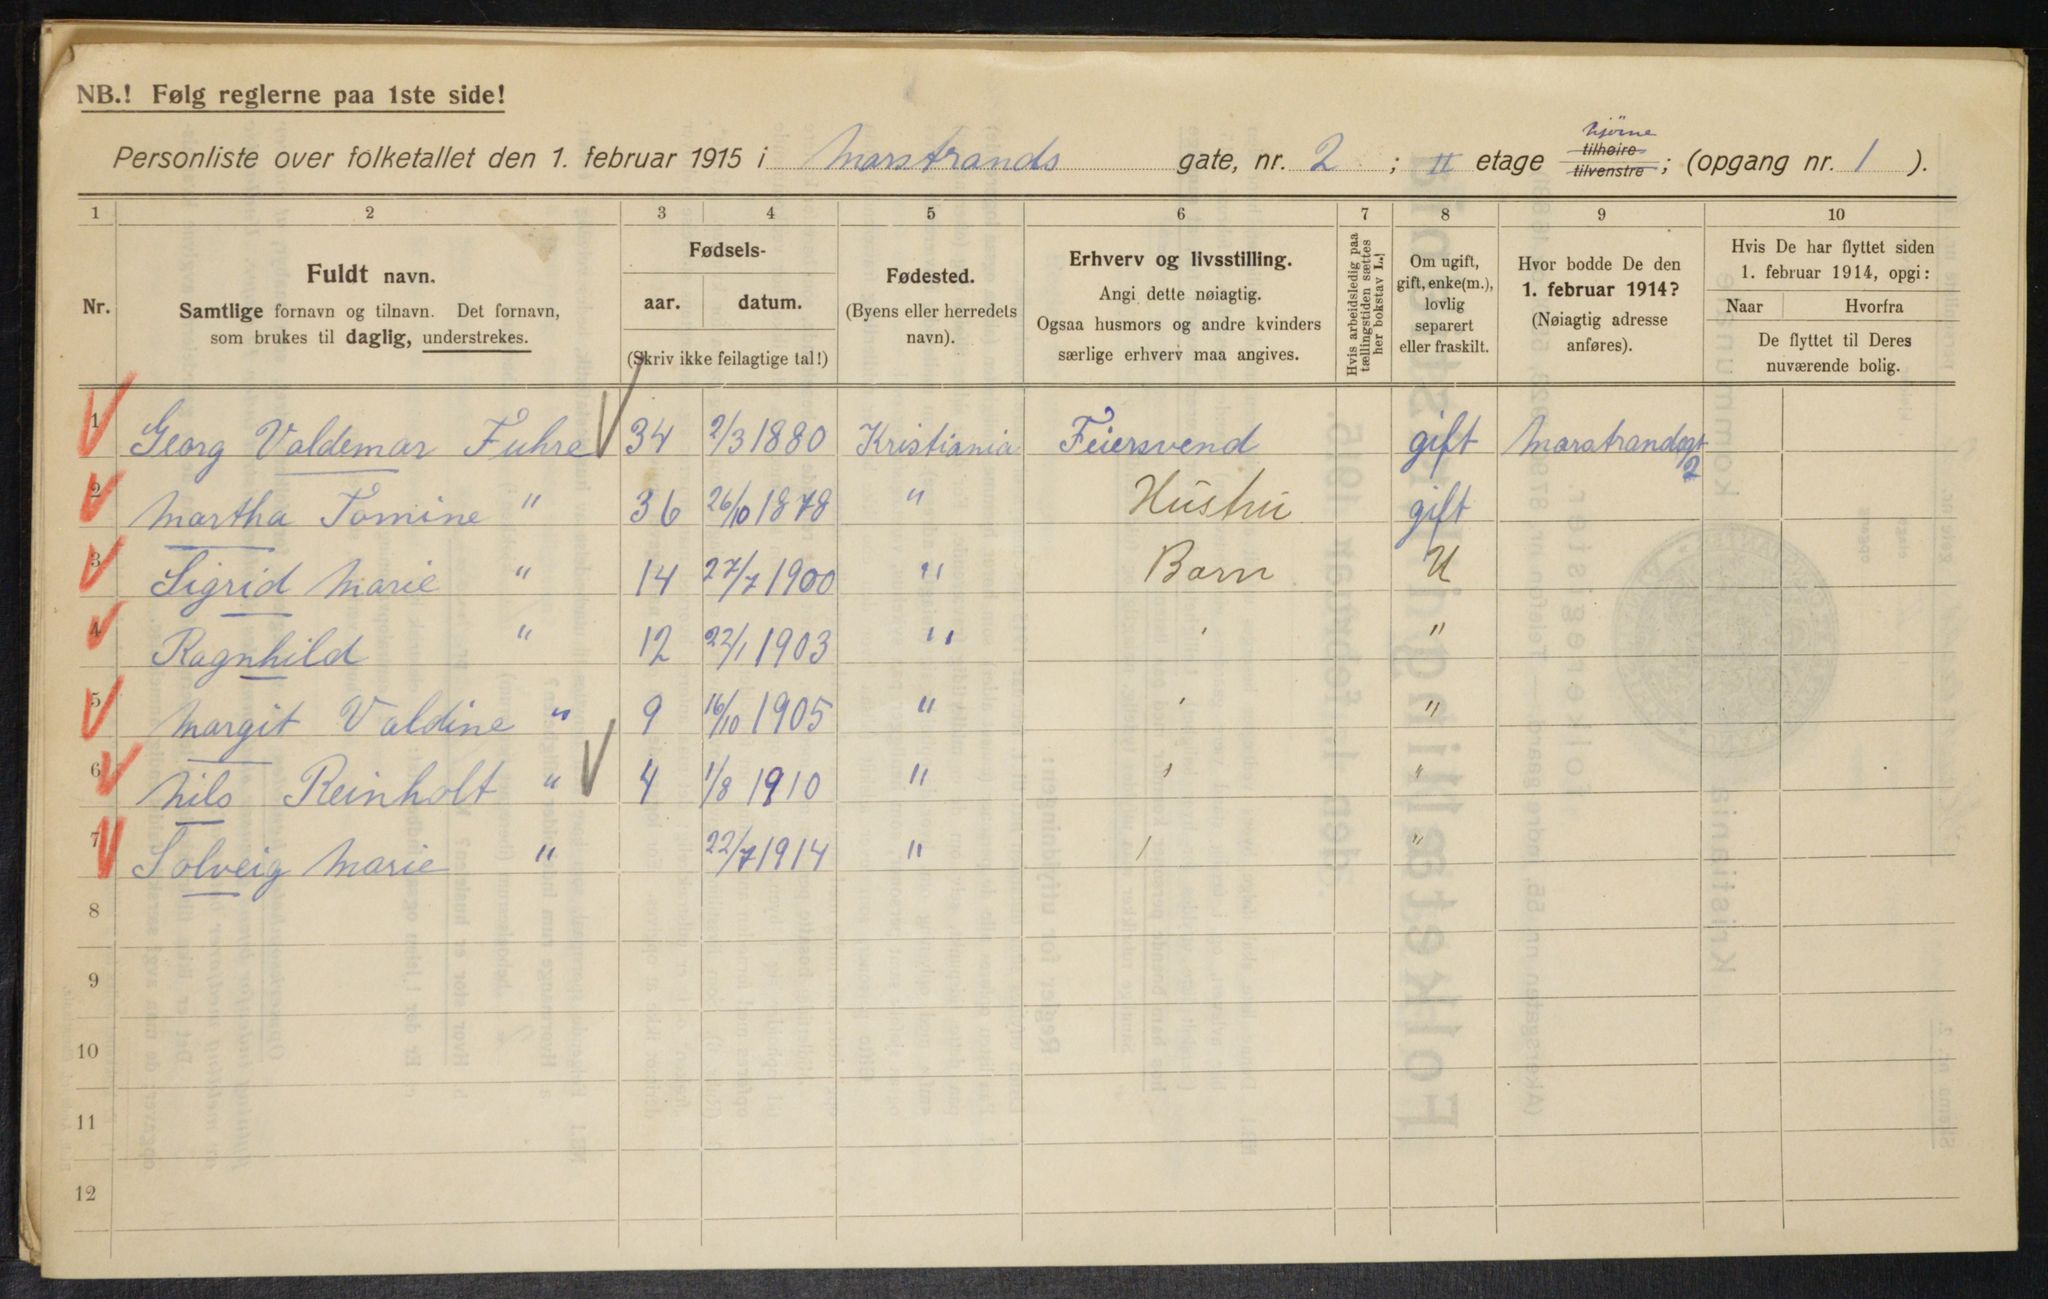 NB.! Følg reglerne paa 1ste side!
hjørne
Personliste over folketallet den 1. februar 1915 i Marstrands gate, nr. 2 ; II etage tilhøire tilvenstre ; (opgang nr. 1 ).
1 2 3 4 5 6 7 8 9 10
Nr.
Fuldt navn.
Samtlige fornavn og tilnavn. Det fornavn,
som brukes til daglig, understrekes.
Fødsels-
aar. datum.
(Skriv ikke feilagtige tal!)
Fødested.
(Byens eller herredets
navn).
Erhverv og livsstilling.
Angi dette nøiagtig.
Ogsaa husmors og andre kvinders
særlige erhverv maa angives.
Hvis arbeidsledig paa
tællingstiden sættes
her bokstav L.)
Om ugift,
gift, enke(m.),
lovlig
separert
eller fraskilt.
Hvor bodde De den
1. februar 1914?
(Nøiagtig adresse
anføres).
Hvis De har flyttet siden
1. februar 1914, opgi:
Naar Hvorfra
De flyttet til Deres
nuværende bolig.
1 Georg Valdemar Fuhre 34 2/3 1880 Kristiania Feiersvend gift Marstrandsgt 2
2 Martha Tomine " 36 26/10 1878 " Hustru gift
3 Sigrid Marie " 14 27/7 1900 " Barn U
4 Ragnhild " 12 22/1 1903 " ' "
5 Margit Valdine " 9 16/10 1905 " ' "
6 Nils Reinholt " 4 1/8 1910 " ' "
7 Solveig Marie " 22/7 1914 " ' "
8
9
10
11
12